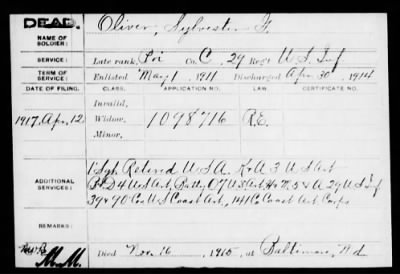 DEAD.
NAME OF SOLDIER: Oliver, Sylvester F.
SERVICE: Late rank, Pvt Co. C, 29 Reg't U S Inf
TERM OF SERVICE: Enlisted May 1, 1911 Discharged Apr 30, 1914
DATE OF FILING. CLASS. APPLICATION NO. LAW. CERTIFICATE NO.
Invalid,
1917. Apr. 12 Widow, 1098716 R.E.
Minor,
ADDITIONAL SERVICES: 1" Sgt. Retired U S A. K + A 3 U S Art
B + D 4 U S Art, Batty O 7 U S Art, H + M 5 & A 29 U S Inf
39 + 40 Co U S Coast Art, 141 Co Coast Art Corps
REMARKS:
M.M. Died Nov. 16, 1915, at Baltimore, Md